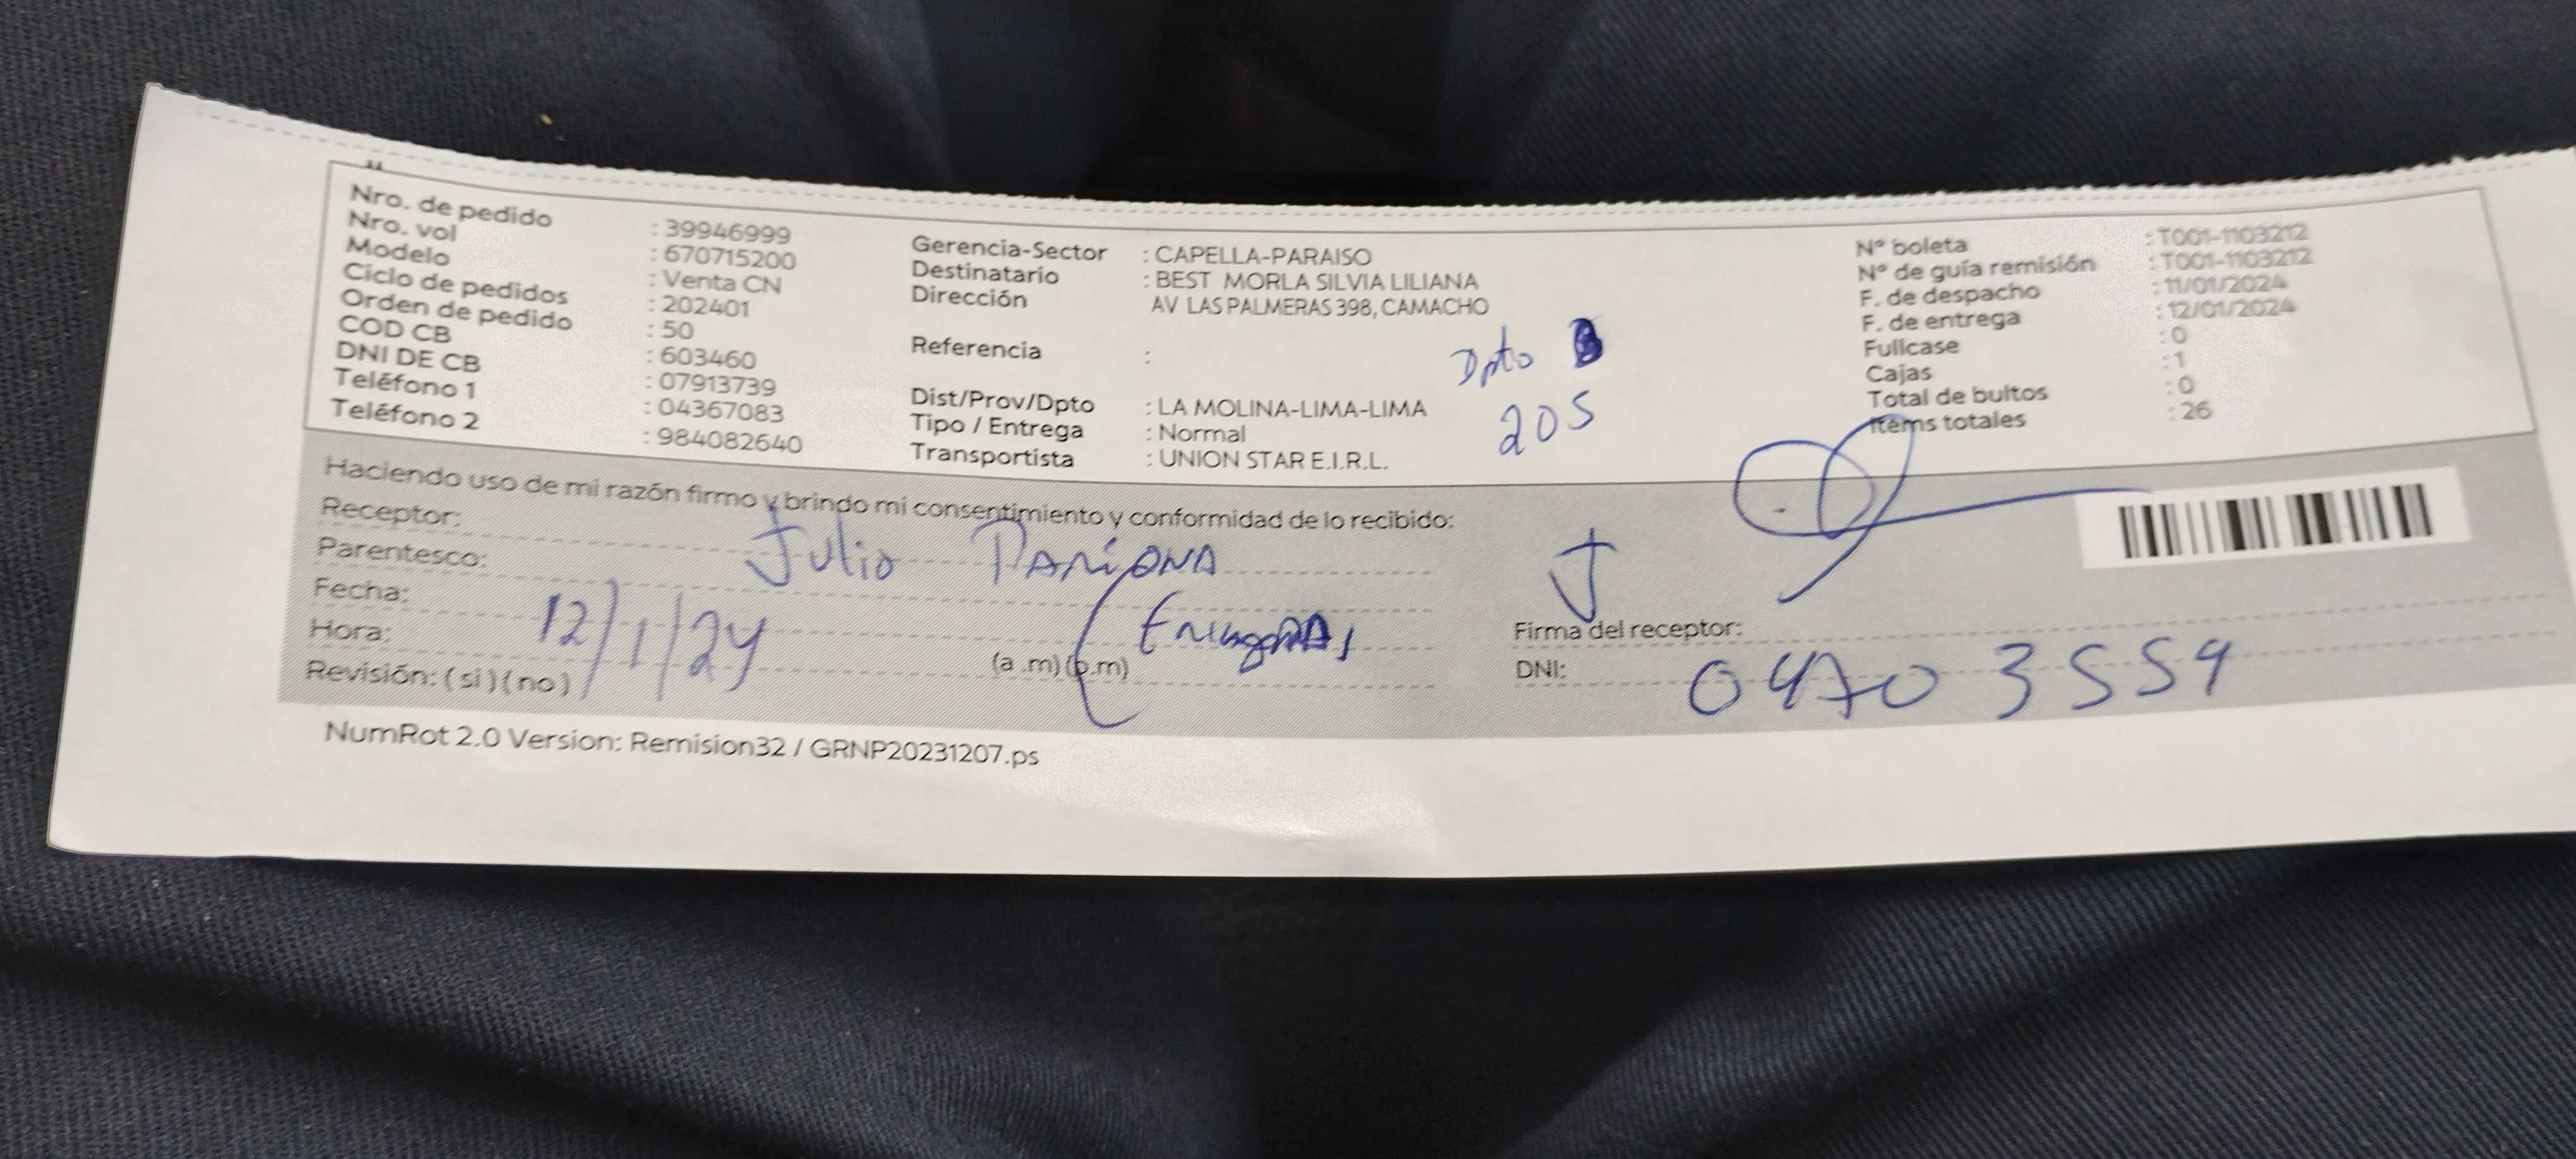 Nro. de pedido : 39946999
Nro. vol : 670715200
Modelo : Venta CN
Ciclo de pedidos : 202401
Orden de pedido : 50
COD CB : 603460
DNI DE CB : 07913739
Teléfono 1 : 04367083
Teléfono 2 : 984082640
Gerencia-Sector : CAPELLA-PARAISO
Destinatario : BEST MORLA SILVIA LILIANA
Dirección AV LAS PALMERAS 398, CAMACHO
Referencia :
Dpto
205
Dist/Prov/Dpto : LA MOLINA-LIMA-LIMA
Tipo / Entrega : Normal
Transportista : UNION STAR E.I.R.L.
N° boleta : T001-1103212
N° de guía remisión : T001-1103212
F. de despacho : 11/01/2024
F. de entrega : 12/01/2024
Fullcase : 0
Cajas : 1
Total de bultos : 0
Items totales : 26
Haciendo uso de mi razón firmo y brindo mi consentimiento y conformidad de lo recibido:
Receptor: Julio PARIONA
Parentesco:
Fecha: 12/1/24
Hora: (a .m) (p.m)
Revisión: ( si ) ( no )
J
Firma del receptor:
DNI: 04703554
NumRot 2.0 Version: Remision32 / GRNP20231207.ps